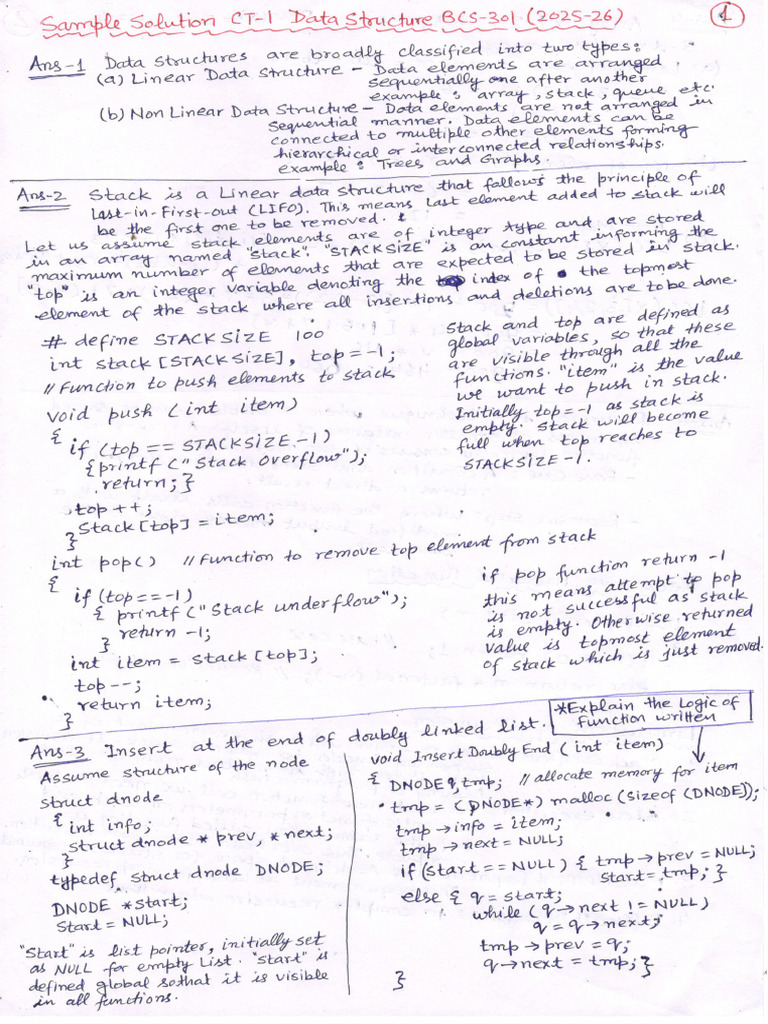 Sample Solution CT-1 Data Structure BCS-301 (2025-26)
1
Ans-1 Data structures are broadly classified into two types:
(a) Linear Data Structure - Data elements are arranged
sequentially one after another
example: array, stack, queue etc.
(b) Non Linear Data Structure - Data elements are not arranged in
sequential manner. Data elements can be
connected to multiple other elements forming
hierarchical or interconnected relationships.
example: Trees and Graphs.
Ans-2 Stack is a Linear data structure that follows the principle of
Last-in-First-out (LIFO). This means last element added to stack will
be the first one to be removed.
Let us assume stack elements are of integer type and are stored
in an array named "stack". "STACKSIZE" is an constant informing the
maximum number of elements that are expected to be stored in stack.
"top" is an integer variable denoting the index of the topmost
element of the stack where all insertions and deletions are to be done.
# define STACKSIZE 100
int stack [STACKSIZE], top = -1;
// Function to push elements to stack
void push (int item)
{
if (top == STACKSIZE -1)
{ printf ("Stack Overflow");
return; }
top ++;
Stack [top] = item;
}
Stack and top are defined as
global variables, so that these
are visible through all the
functions. "item" is the value
we want to push in stack.
Initially top = -1 as stack is
empty. Stack will become
full when top reaches to
STACKSIZE -1.
int pop() // Function to remove top element from stack
{
if (top == -1)
{ printf ("Stack underflow");
return -1;
}
int item = stack [top];
top --;
return item;
}
if pop function return -1
this means attempt to pop
is not successful as stack
is empty. Otherwise returned
value is topmost element
of stack which is just removed.
Ans-3 Insert at the end of doubly linked list.
*Explain the Logic of
function written
Assume structure of the node
struct dnode
{ int info;
struct dnode * prev, * next;
}
typedef struct dnode DNODE;
DNODE *start;
Start = NULL;
"Start" is list pointer, initially set
as NULL for empty List. "Start" is
defined global so that it is visible
in all functions.
void Insert Doubly End (int item)
{ DNODE q, tmp; // allocate memory for item
tmp = (DNODE*) malloc (sizeof (DNODE));
tmp → info = item;
tmp → next = NULL;
if (start == NULL) { tmp → prev = NULL;
start = tmp; }
else { q = start;
while (q → next != NULL)
q = q → next;
tmp → prev = q;
q → next = tmp; }
}